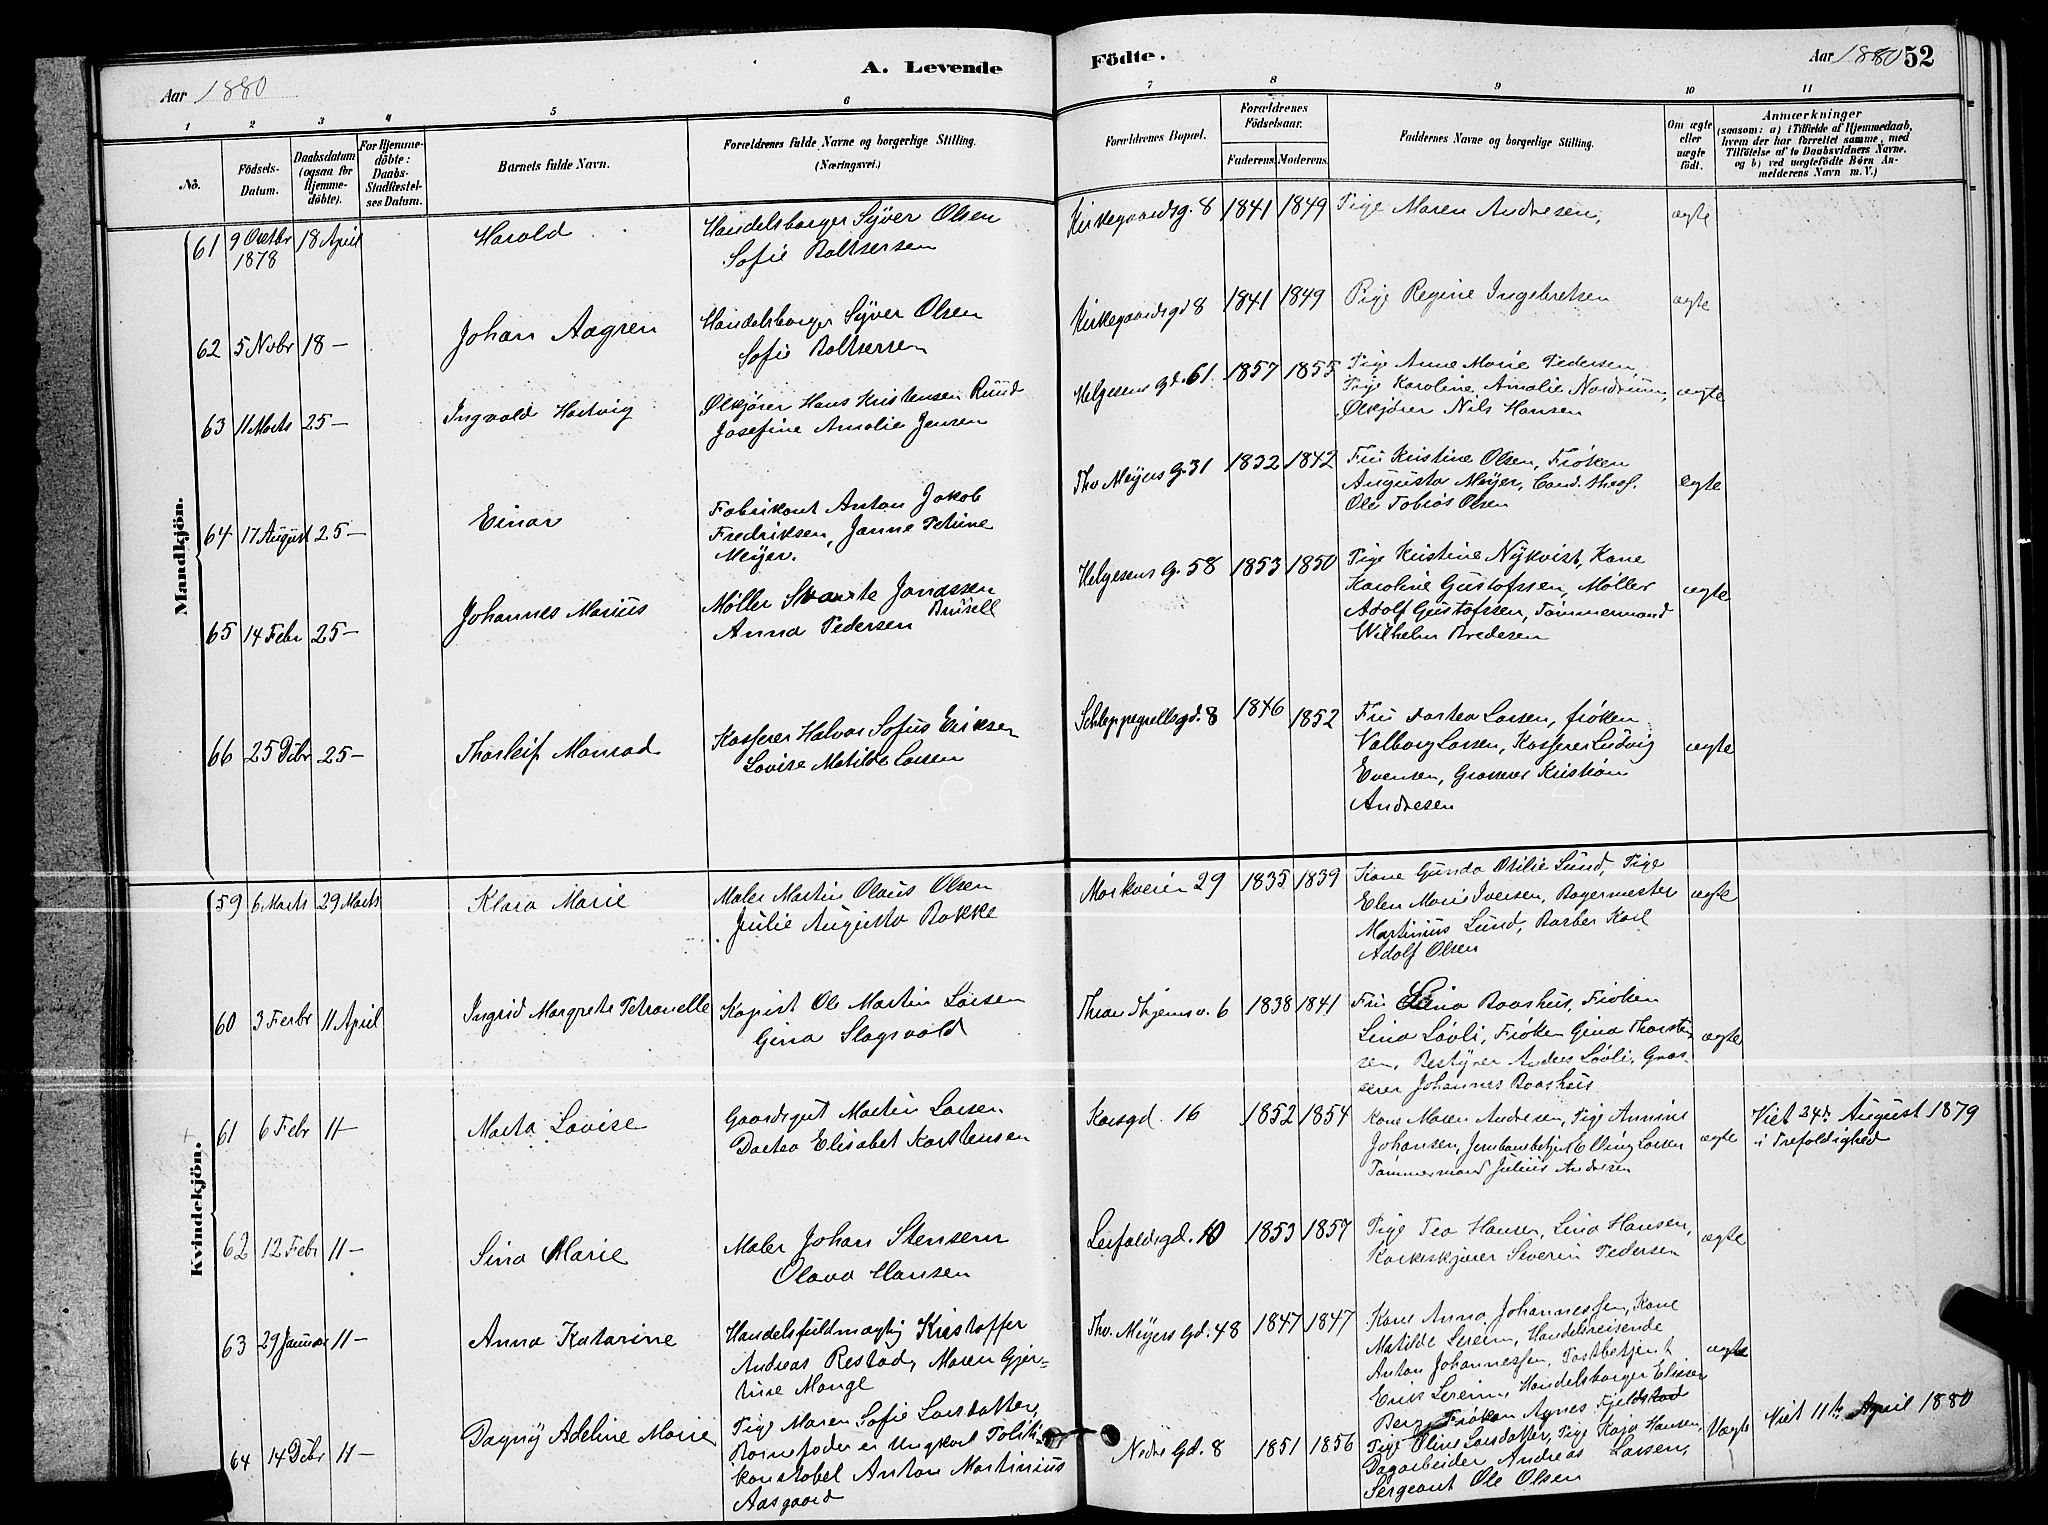 Aar 1880
A. Levende
Födte.
Aar 1880 52
1 2 3 4 5 6 7 8 9 10 11
No.
Födsels-
Datum.
Daabsdatum
(ogsaa for
Hjemme-
döbte).
For Hjemme-
döbte:
Daabs-
Stadfæstel-
ses Datum.
Barnets fulde Navn.
Forældrenes fulde Navne og borgerlige Stilling.
(Næringsvei.)
Forældrenes Bopæl.
Forældrenes
Födselsaar.
Faderens. Moderens.
Faddernes Navne og borgerlige Stilling.
Om ægte
eller
uægte
født.
Anmærkninger
(saasom: a) i Tilfælde af Hjemmedaab,
hvem der har forrettet samme, med
Tilföielse af to Daabsvidners Navne.
og b) ved uægtefödte Börn An-
melderens Navn m. V.)
Mandkjön.
61 9 Octbr 1878 18 April Harald
Handelsborger Syver Olsen
Sofie Baltsersen
Kirkegaardsg. 8 1841 1849 Pige Maren Andresen, ægte
62 5 Novbr 18 – Johan Aagren
Handelsborger Syver Olsen
Sofie Baltsersen
Kirkegaardsgd 8 1841 1849 Pige Regine Ingebretsen ægte
63 11 Marts 25 – Ingvald Hartvig
Ølkjører Hans Kristensen Ruud
Josefine Amalie Jensen
Helgesens Gd. 61 1857 1855 Pige Anne Marie Pedersen
Pige Karoline Amalie Nordrum, ægte
Ølkjører Nils Hansen
64 17 August 25 – Einar
Fabrikant Anton Jakob
Fredriksen, Janne Petrine
Meyer.
Thv Meyers G. 31 1832 1842 Fru Kristine Olsen, Frøken
Augusta Meyer, Cand. theol. ægte
Ole Tobias Olsen
65 14 Febr 25 – Johannes Marius
Møller Svante Jonassen
Brusell
Anna Pedersen
Helgesens G. 58 1853 1850 Pige Kristine Nykvist, Kone
Karoline Gustafssen, Møller ægte
Adolf Gustafssen, Tømmermand
Wilhelm Bredesen
66 25 Dcbr 25 – Thorleif Monrad
Kasserer Halvor Sofus Eriksen
Lovise Matilde Larsen
Schleppegrellsgd. 8 1846 1852 Fru Dortea Larsen, frøken
Valborg Larsen, Kasserer Ludvig ægte
Evensen, Grosserer Kristian
Andresen
Kvindekjön.
59 6 Marts 29 Marts Klara Marie
Maler Martin Olaus Olsen
Julie Augusta Bakke
Markveien 29 1835 1839 Kone Gunda Otilie Lund, Pige
Elen Marie Iversen, Bagermester ægte
Martinius Lund, Barber Karl
Adolf Olsen
60 3 Febr 11 April Ingrid Margrete Petronelle
Kopist Ole Martin Larsen
Gina Slagsvold
Throndhjemsv. 6 1838 1841 Fru Lina Baashus, Frøken
Lina Løvli, Frøken Gina Thorsten- ægte
sen, Bestyrer Anders Løvli, Gros-
serer Johannes Baashus
61 6 Febr 11 – Marta Lovise
Gaardsgut Martin Larsen
Dortea Elisabet Karstensen
Korsgd. 16 1852 1854 Kone Maren Andresen, Pige Annine
Johansen, Jernbanebetjent Elling Larsen ægte
Tømmermand Julius Andresen
Viet 24de August 1879
i Trefoldighed
62 12 Febr 11 – Sina Marie
Maler Johan Stensen
Olava Hansen
Leirfaldsgd. 10 1853 1857 Pige Tea Hansen, Lina Hansen,
Karkeskjører Severin Pedersen ægte
63 29 Januar 11 – Anna Katarine
Handelsfuldmægtig Kristoffer
Andreas Restad, Maren Gjer-
trine Monge
Thv. Meyers Gd. 48 1847 1847 Kone Anna Johannessen, Kone
Matilde Lereim, Handelsreisende
Anton Johannessen, Postbetjent ægte
Erik Lereim, Handelsborger Eliser
Berg, Frøken Agnes Fjeldstad
64 14 Dcbr 11 – Dagny Adeline Marie
Pige Maren Sofie Larsdatter,
Barnefader er Ungkarl Politi-
konstabel Anton Martinius
Aasgaard
Nedre Gd. 8 1851 1856 Pige Oline Larsdatter, Pige Kaja Hansen, Uægte
Dagarbeider Andreas Larsen,
Sergeant Ole Olsen
Viet 11te April 1880